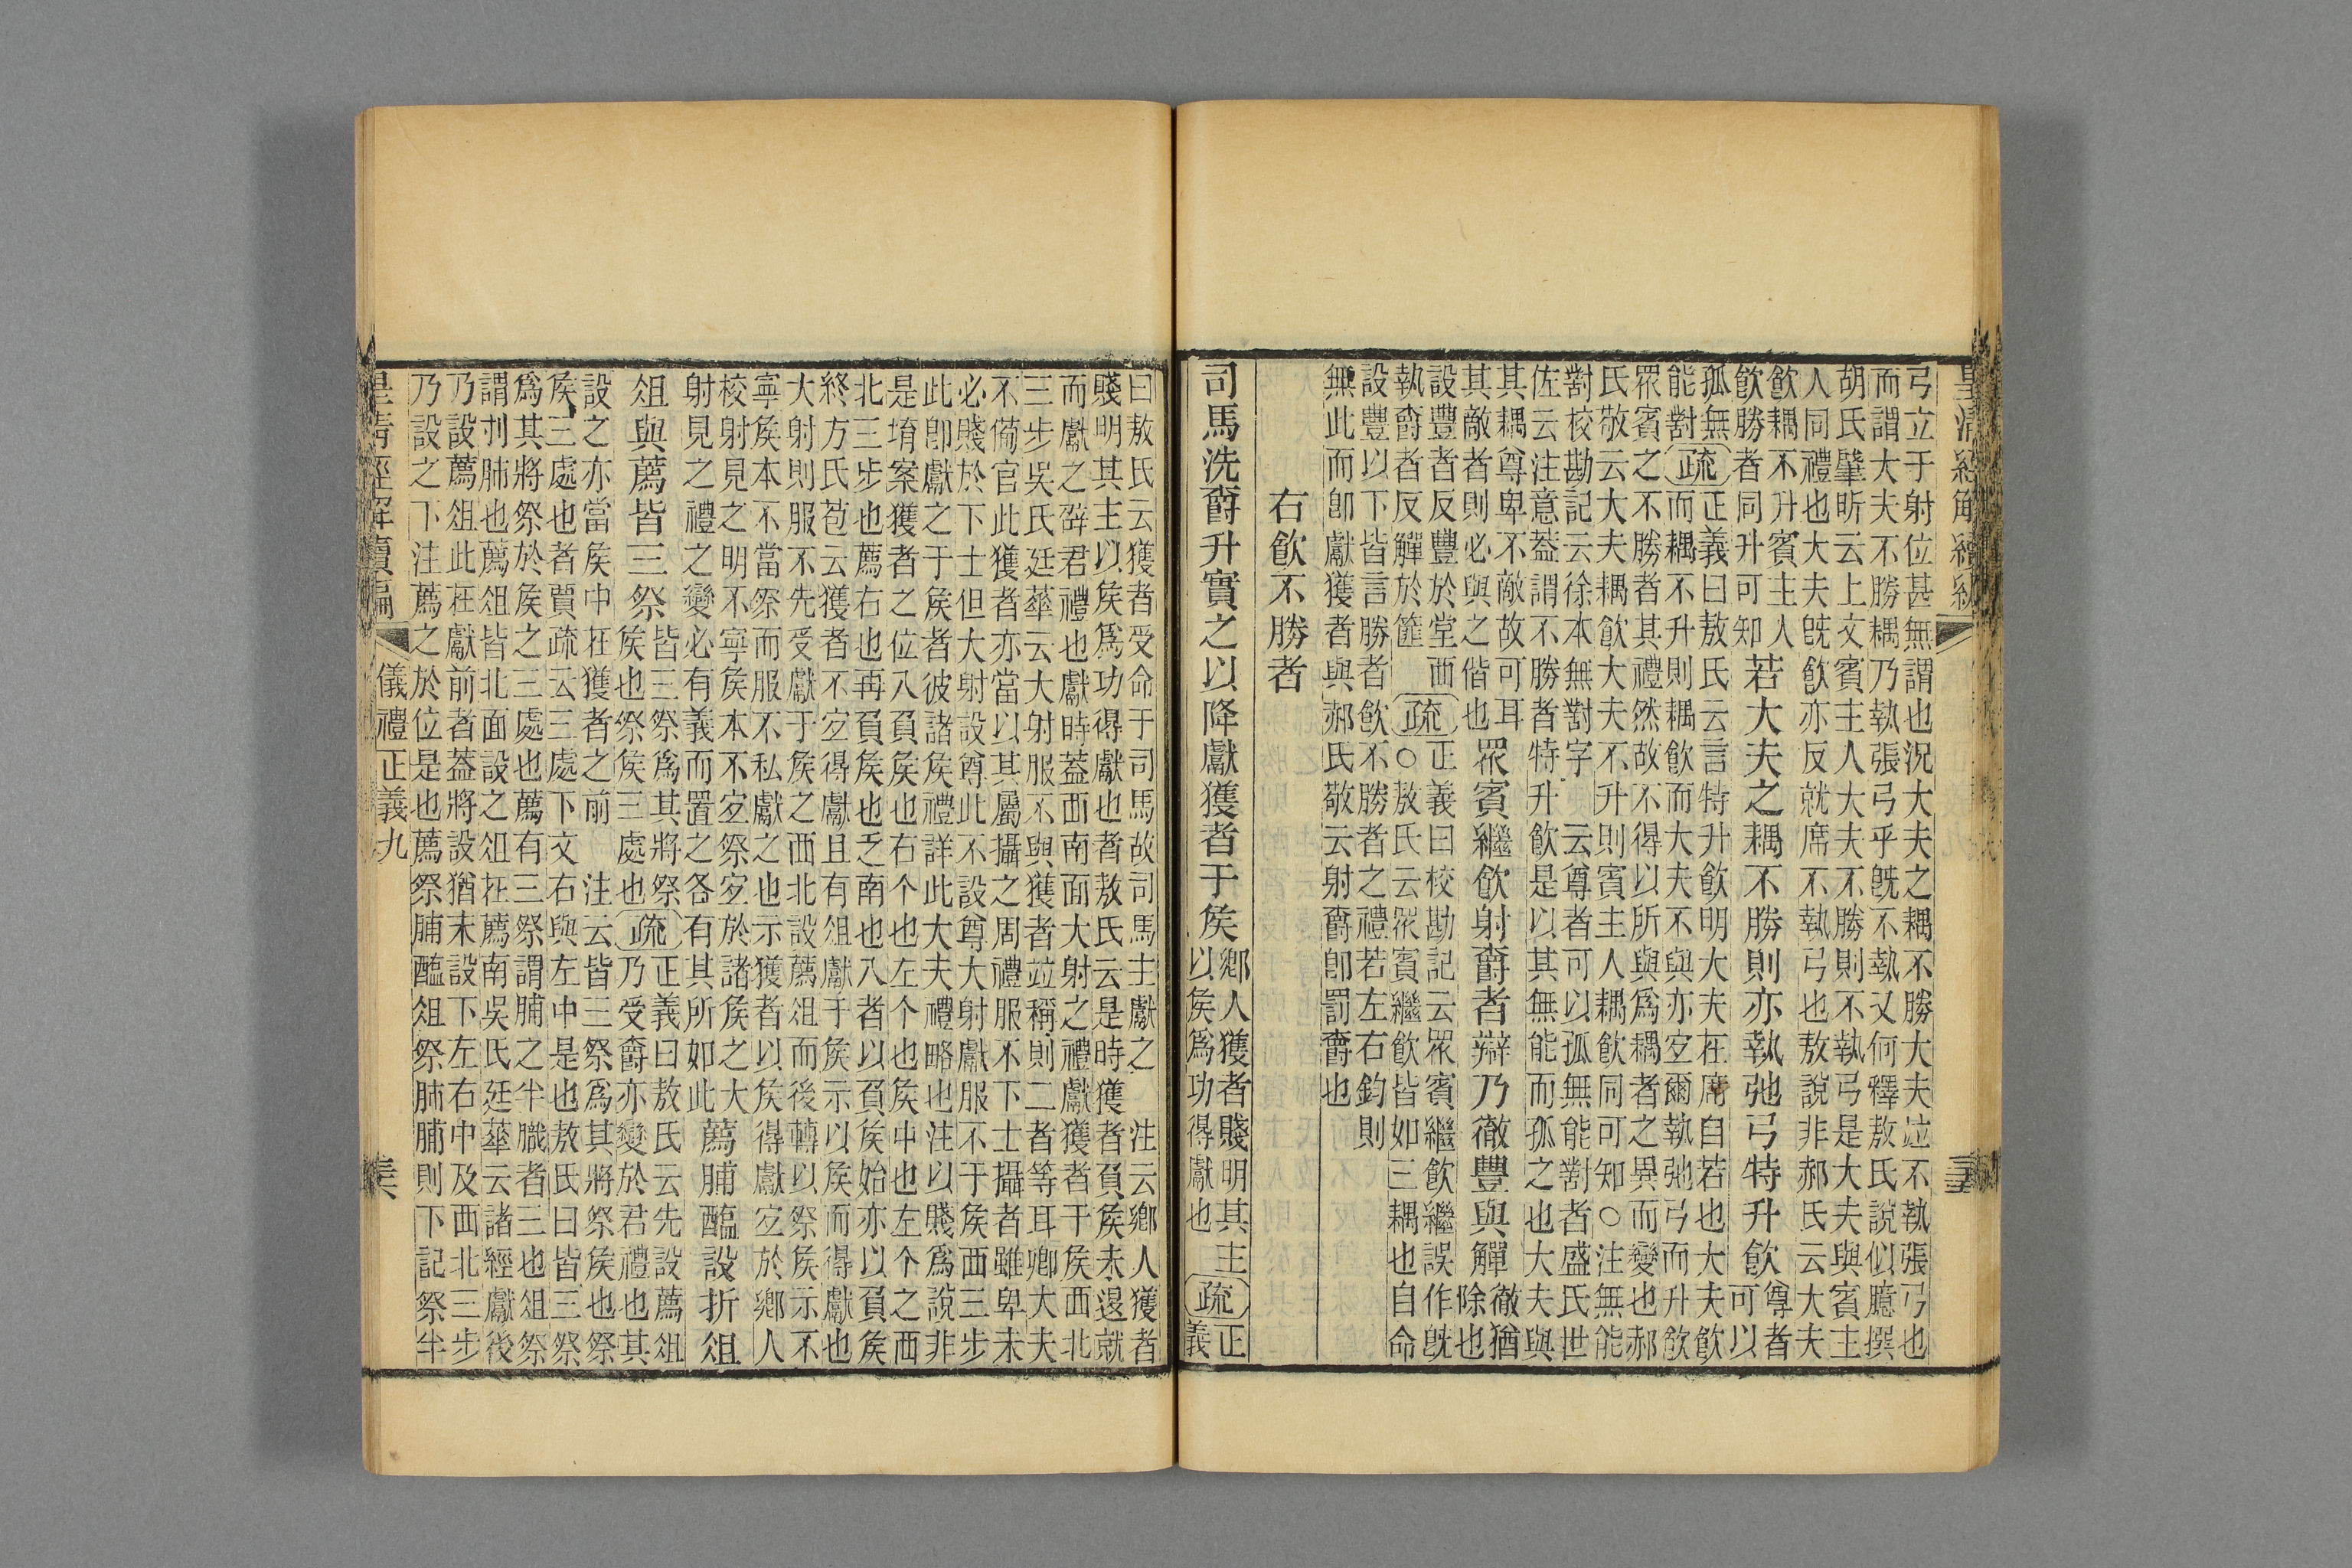 皇清經解續編
弓立于射位甚無謂也況大夫之耦不勝大夫竝不執張弓也
而謂大夫不勝耦乃執張弓乎旣不執又何釋敖氏說似臆撰
胡氏肇昕云上文賓主人大夫不勝則不執弓是大夫與賓主
人同禮也大夫旣飮亦反就席不執弓也敖說非郝氏云大夫
飮耦不升賓主人
飮勝者同升可知
若大夫之耦不勝則亦執弛弓特升飮
尊者可以
孤無能對
疏
正義曰敖氏云言特升飮明大夫在席自若也大夫飮
而耦不升則耦飮而大夫不與亦宜爾執弛弓而升飮
眾賓之不勝者其禮然故不得以所與爲耦者之異而變也郝
氏敬云大夫耦飮大夫不升則賓主人耦飮同可知○注無能
對校勘記云徐本無對字 云尊者可以孤無能對者盛氏世
佐云注意葢謂不勝者特升飮是以其無能而孤之也大夫與
其耦尊卑不敵故可耳
其敵者則必與之偕也
眾賓繼飮射爵者辯乃徹豐與觶
徹猶
除也
設豐者反豐於堂西
執爵者反觶於篚
疏
正義曰校勘記云眾賓繼飮繼誤作旣
○敖氏云眾賓繼飮皆如三耦也自命
設豐以下皆言勝者飮不勝者之禮若左右鈞則
無此而卽獻獲者與郝氏敬云射爵卽罰爵也
右飮不勝者
司馬洗爵升實之以降獻獲者于矦
鄉人獲者賤明其主
以矦爲功得獻也
疏
正
義
曰敖氏云獲者受命于司馬故司馬主獻之 注云鄉人獲者
賤明其主以矦爲功得獻也者敖氏云是時獲者負矦未退就
而獻之辟君禮也獻時葢西南面大射之禮獻獲者于矦西北
三步吳氏廷華云大射服不與獲者竝稱則二者等耳卿大夫
不備官此獲者亦當以其屬攝之周禮服不下士攝者雖卑未
必賤於下士但大射設尊此不設尊大射獻服不于矦西三步
此卽獻之于矦者彼諸矦禮詳此大夫禮略也注以賤爲說非
是堉案獲者之位入負矦也右个也左个也矦中也左个之西
北三步也薦右也再負矦也乏南也入者以負矦始亦以負矦
終方氏苞云獲者不宜得獻且有俎獻于矦示以矦而得獻也
大射則服不先受獻于矦之西北設薦俎而後轉以祭矦示不
寧矦本不當祭而服不私獻之也示獲者以矦得獻宜於鄉人
校射見之明不寧矦本不宜祭宜於諸矦之大
射見之禮之變必有義而置之各有其所如此
薦脯醢設折俎
俎與薦皆三祭
皆三祭爲其將祭
矦也祭矦三處也
疏
正義曰敖氏云先設薦俎
乃受爵亦變於君禮也其
設之亦當矦中在獲者之前 注云皆三祭爲其將祭矦也祭
矦三處也者賈疏云三處下文右與左中是也敖氏曰皆三祭
爲其將祭於矦之三處也薦有三祭謂脯之半膱者三也俎祭
謂刌肺也薦俎皆北面設之俎在薦南吳氏廷華云諸經獻後
乃設薦俎此在獻前者葢將設猶未設下左右中及西北三步
乃設之下注薦之於位是也薦祭脯醢俎祭肺脯則下記祭半
皇清經解續編 儀禮正義九